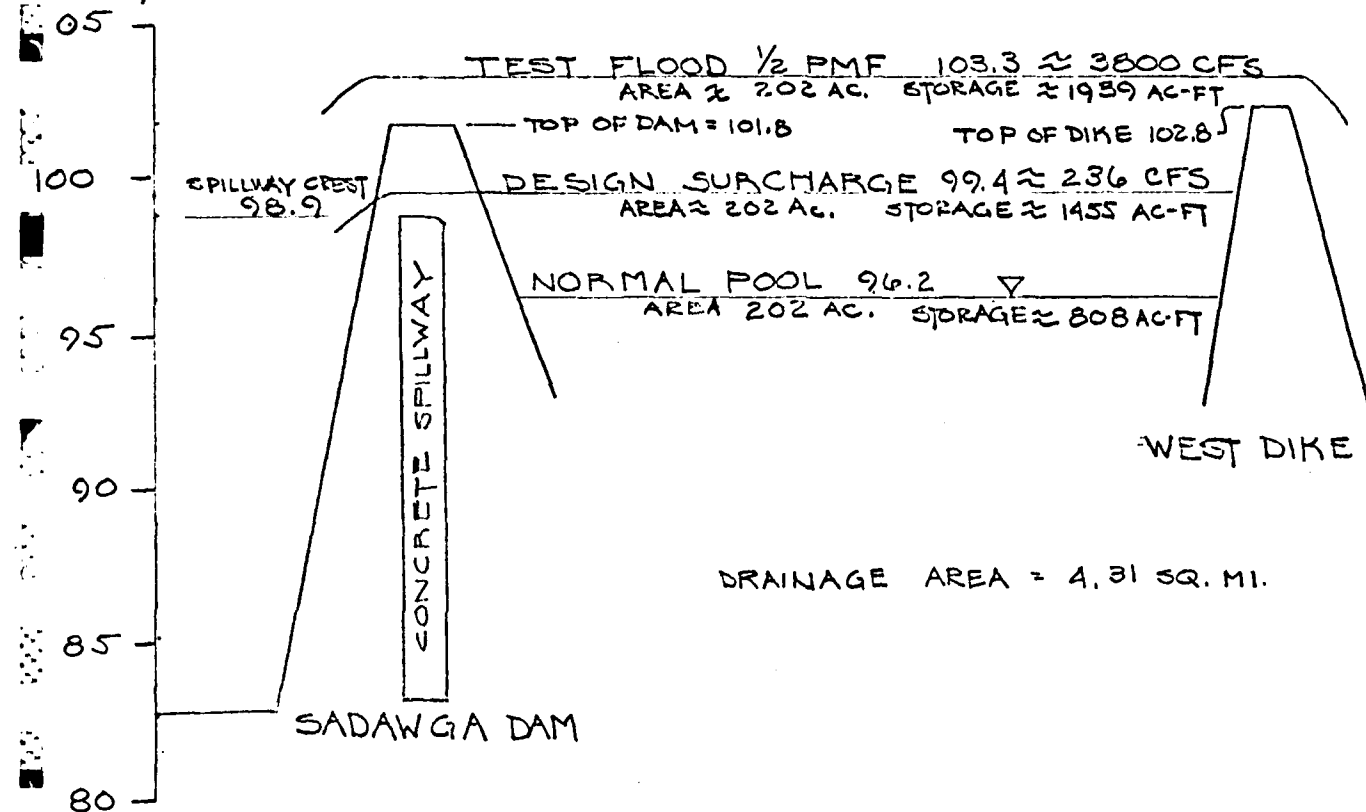 05
TEST FLOOD ½ PMF 103.3 ≈ 3800 CFS
AREA ≈ 202 AC. STORAGE ≈ 1939 AC-FT
TOP OF DAM = 101.8
TOP OF DIKE 102.8
100
SPILLWAY CREST
98.9
DESIGN SURCHARGE 99.4 ≈ 236 CFS
AREA ≈ 202 AC. STORAGE ≈ 1455 AC-FT
NORMAL POOL 96.2
AREA 202 AC. STORAGE ≈ 808 AC-FT
95
CONCRETE SPILLWAY
WEST DIKE
90
DRAINAGE AREA = 4.31 SQ. MI.
85
SADAWGA DAM
80